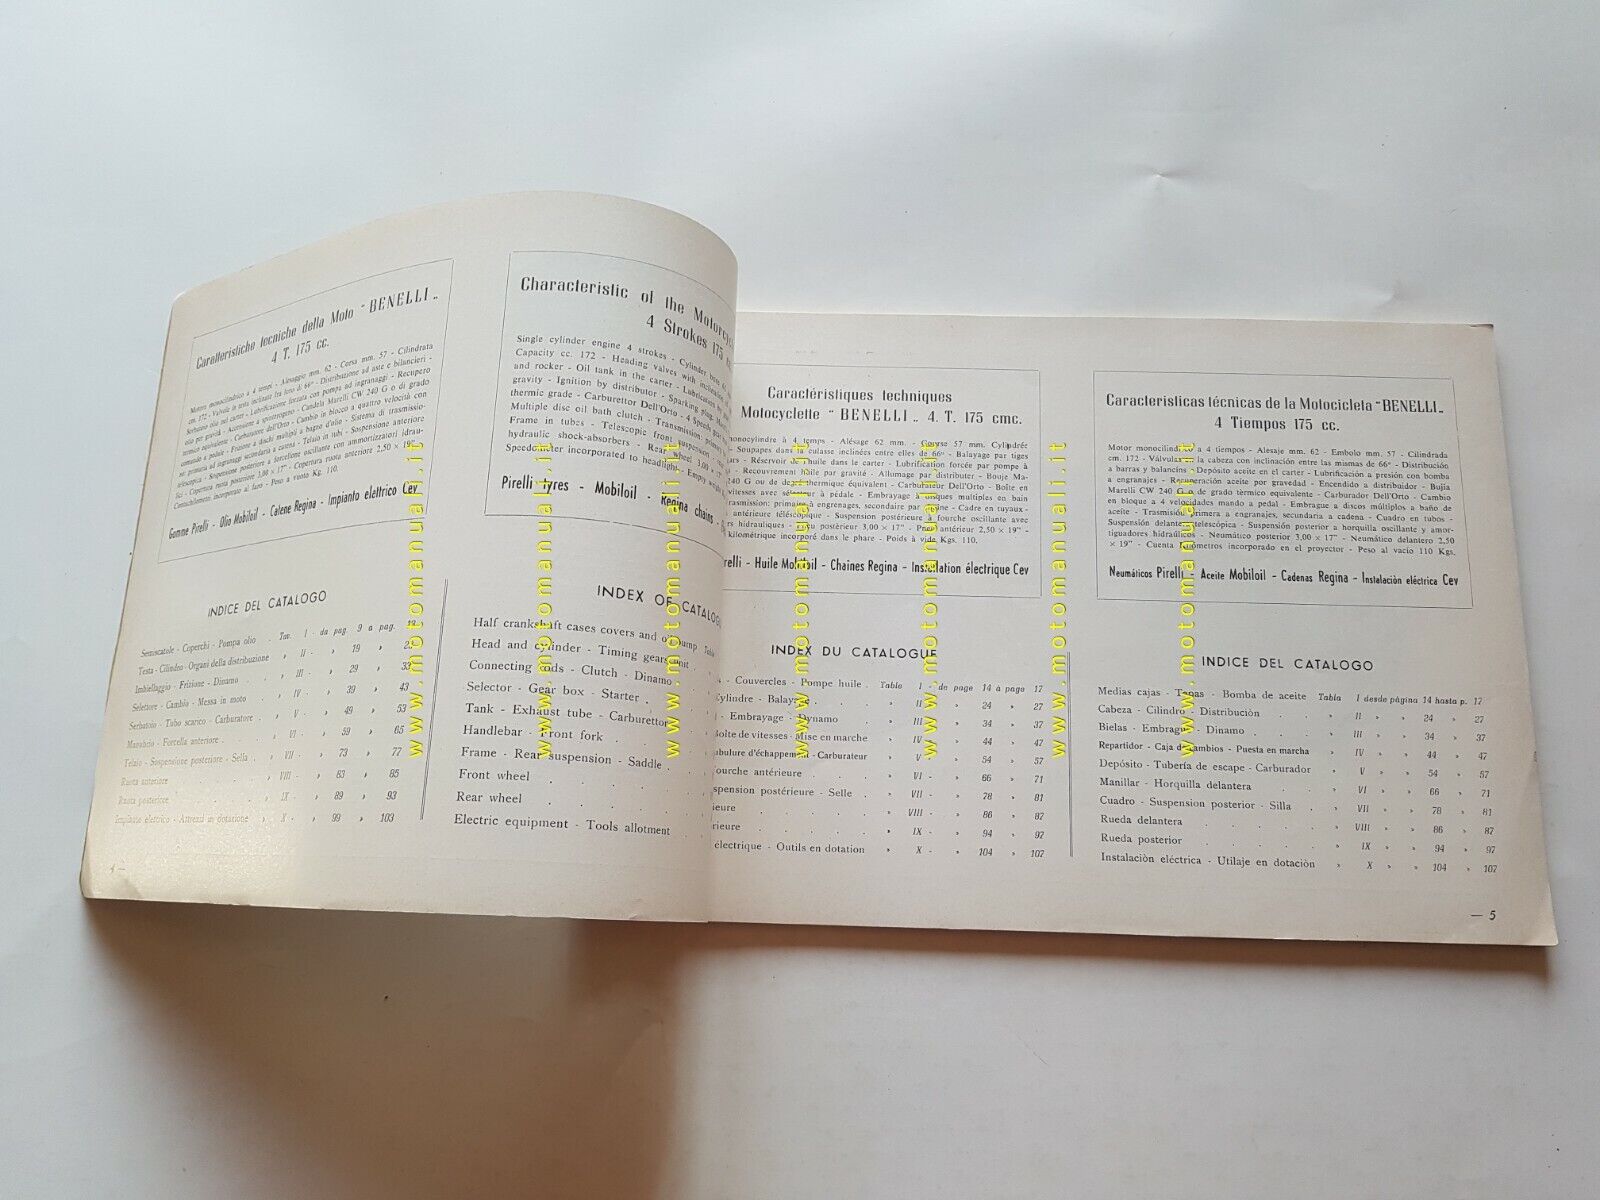 Caratteristiche tecniche della Moto "BENELLI"
4 T. 175 cc.
Motore monocilindrico a 4 tempi - Alesaggio mm. 62 - Corsa mm. 57 - Cilindrata
cc. 172 - Valvole in testa inclinate fra loro di 66° - Distribuzione ad aste e bilancieri -
Serbatoio olio nel carter - Lubrificazione forzata con pompa ad ingranaggi - Recupero
olio per gravità - Accensione a spinterogeno - Candela Marelli CW 240 G o di grado
termico equivalente - Carburatore Dell'Orto - Cambio in blocco a quattro velocità con
comando a pedale - Frizione a dischi multipli a bagno d'olio - Sistema di trasmissio-
ne: primaria ad ingranaggi secondaria a catena - Telaio in tubi - Sospensione anteriore
telescopica - Sospensione posteriore a forcellone oscillante con ammortizzatori idrau-
lici - Copertura posteriore 3,00 × 17" - Copertura ruota anteriore 2,50 × 19" -
Contachilometri incorporato al faro - Peso a vuoto Kg. 110.
Gomme Pirelli - Olio Mobiloil - Catene Regina - Impianto elettrico Cev
INDICE DEL CATALOGO
Semiscatole - Coperchi - Pompa olio . Tav. I - da pag. 9 a pag. 13
Testa - Cilindro - Organi della distribuzione » II - » 19 » 23
Imbiellaggio - Frizione - Dinamo . » III - » 29 » 33
Selettore - Cambio - Messa in moto » IV - » 39 » 43
Serbatoio - Tubo scarico - Carburatore . » V - » 49 » 53
Manubrio - Forcella anteriore . » VI - » 59 » 65
Telaio - Sospensione posteriore - Sella . » VII - » 73 » 77
Ruota anteriore » VIII - » 83 » 85
Ruota posteriore » IX - » 89 » 93
Impianto elettrico - Attrezzi in dotazione » X - » 99 » 103
4 —
Characteristic of the Motorcy
4 Strokes 175
Single cylinder engine 4 strokes - Cylinder bore 62
Capacity cc. 172 - Heading valves with inclination
and rocker - Oil tank in the carter - Lubrication
gravity - Ignition by distributor - Sparking plug
thermic grade - Carburettor Dell'Orto - 4 Speeds
Multiple disc oil bath clutch - Transmission: primary
Frame in tubes - Telescopic front suspension
hydraulic shock-absorbers - Rear wheel 3,00 ×
Speedometer incorporated to headlight - Empty weight
Pirelli tyres - Mobiloil - Regina chains -
INDEX OF CATALOG
Half crankshaft cases covers and oil pump Table
Head and cylinder - Timing gears unit .
Connecting rods - Clutch - Dinamo .
Selector - Gear box - Starter .
Tank - Exhaust tube - Carburettor
Handlebar - Front fork .
Frame - Rear suspension - Saddle .
Front wheel
Rear wheel
Electric equipment - Tools allotment
Caractéristiques techniques
Motocyclette "BENELLI" 4. T. 175 cmc.
monocylindre à 4 temps - Alésage 62 mm. - Course 57 mm. Cylindrée
- Soupapes dans la culasse inclinées entre elles de 66° - Balayage par tiges
- Réservoir de l'huile dans le carter - Lubrification forcée par pompe à
- Recouvrement huile par gravité - Allumage par distributeur - Bouje Ma-
240 G ou de degré thermique équivalent - Carburateur Dell'Orto - Boîte en
vitesses avec sélecteur à pédale - Embrayage à disques multiples en bain
trasmission: primaire à engrenages, secondaire par chaîne - Cadre en tuyaux -
antérieure télèscopique - Suspension postérieure à fourche oscillante avec
hydrauliques - Pneu postérieur 3,00 × 17" - Pneu antérieur 2,50 × 19" -
kilométrique incorporé dans le phare - Poids à vide Kgs. 110.
relli - Huile Mobiloil - Chaines Regina - Installation électrique Cev
INDEX DU CATALOGUE
- Couvercles - Pompe huile . Table I - de page 14 à page 17
Cylindre - Balayage . » II - » 24 » 27
- Embrayage - Dynamo » III - » 34 » 37
Boîte de vitesses - Mise en marche » IV - » 44 » 47
Tubulure d'échappement - Carburateur » V - » 54 » 57
Fourche antérieure » VI - » 66 » 71
spension postérieure - Selle . » VII - » 78 » 81
ieure » VIII - » 86 » 87
érieure » IX - » 94 » 97
électrique - Outils en dotation » X - » 104 » 107
Caracteristicas técnicas de la Motocicleta "BENELLI"
4 Tiempos 175 cc.
Motor monocilindrico a 4 tiempos - Alesaje mm. 62 - Embolo mm. 57 - Cilindrada
cm. 172 - Válvulas en la cabeza con inclinación entre las mismas de 66° - Distribución
a barras y balancins - Depósito aceite en el carter - Lubrificación a presión con bomba
a engranajes - Recuperación aceite por gravedad - Encendido a distribuidor - Bujía
Marelli CW 240 G o de grado tèrmico equivalente - Carburador Dell'Orto - Cambio
en bloque a 4 velocidades mando a pedal - Embrague a discos múltiplos a baño de
aceite - Trasmisión primera a engranajes, secundaria a cadena - Cuadro en tubos -
Suspensión delantera telescópica - Suspensión posterior a horquilla oscillante y amor-
tiguadores hidraúlicos - Neumático posterior 3,00 × 17" - Neumático delantero 2,50
× 19" - Cuenta Kilómetros incorporado en el proyector - Peso al vacío 110 Kgs.
Neumáticos Pirelli - Aceite Mobiloil - Cadenas Regina - Instalaciòn eléctrica Cev
INDICE DEL CATALOGO
Medias cajas - Tapas - Bomba de aceite Tabla I desde página 14 hasta p. 17
Cabeza - Cilindro - Distribuciòn » II » » 24 » 27
Bielas - Embrague - Dinamo » III » » 34 » 37
Repartidor - Caja de cambios - Puesta en marcha » IV » » 44 » 47
Depósito - Tubería de escape - Carburador » V » » 54 » 57
Manillar - Horquilla delantera » VI » » 66 » 71
Cuadro - Suspension posterior - Silla . » VII » » 78 » 81
Rueda delantera » VIII » » 86 » 87
Rueda posterior » IX » » 94 » 97
Instalaciòn eléctrica - Utilaje en dotaciòn » X » » 104 » 107
— 5
www.motomanuali.it
www.motomanuali.it
www.motomanuali.it
www.motomanuali.it
www.motomanuali.it
www.motomanuali.it
www.motomanuali.it